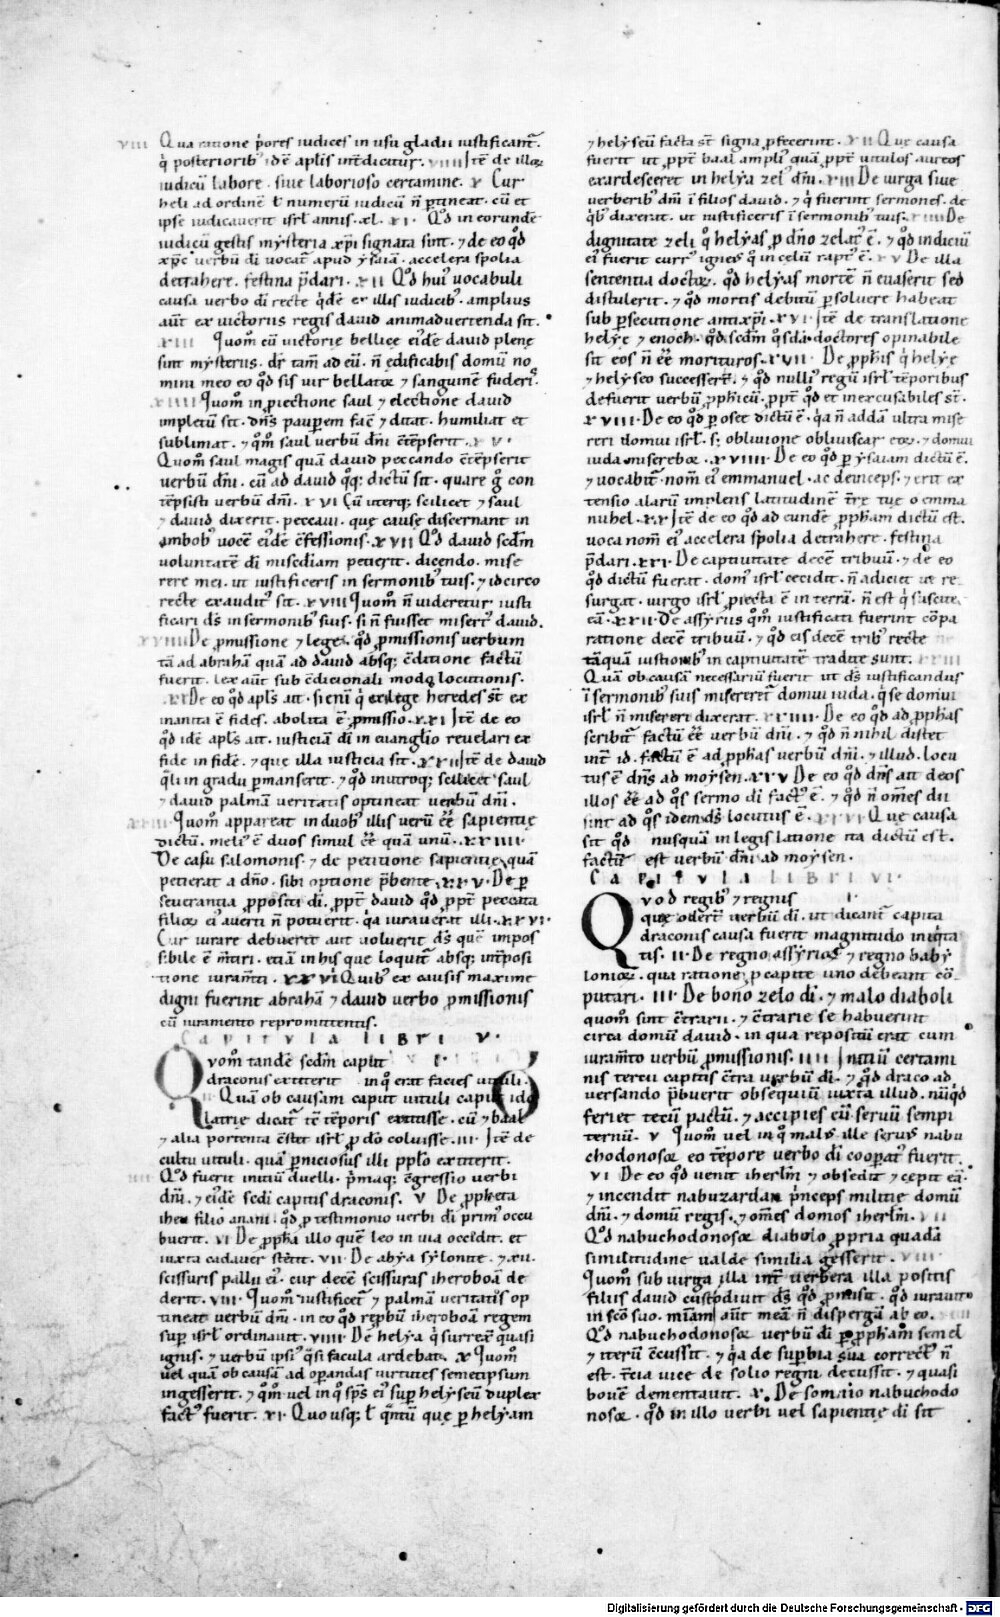 VIII Qua ratione p̄ores iudices in usu gladii iustificant᷑.
q̇ posteriorib᷒ idē apl̄is int̄dicitur. VIIII Itē de illoꝝ
iudicū labore. siue laborioso certamine. X Cur
heli ad ordinē ł numerū iudicū n̄ ptineat. cū et
ipse iudicauerit isrł annis. xl. XI. Qđ in eorundē
iudicū gestis mysteria xp̄i signata sint. ⁊ de eo qđ
xp̄c uerbū dī uocat᷑ apud ysaiā. accelera spolia
detrahere. festina p̄dari. XII Qđ hui᷒ uocabuli
causa uerbo dī recte qˀdē ex illis iudicib᷒. amplius
aūt ex uictoriis regis dauid animaduertenda sit.
XIII Quom̄ cū uictorię bellicę eidē dauid plenę
sint mysteriis. dr̄ tam̄ ad eū. n̄ edificabis domū no
mini meo eo qđ sis uir bellatoꝛ ⁊ sanguinē fuderi᷒.
XIIII Quom̄ in ꝓiectione saul ⁊ electione dauid
impletū sit. dn̄s pauꝑem fac̄ ⁊ ditat. humiliat et
sublimat. ⁊ qm̄ saul uerbū dn̄i c̄tēpserit. XV.
Quom̄ saul magis quā dauid peccando c̄tēpserit
uerbū dn̄i. cū ad dauid qꝫ dictū sit. quare g̊ con
tēpsisti uerbū dn̄i. XVI Cū uterqꝫ scilicet ⁊ saul
⁊ dauid dixerit. peccaui. quę causę discernant in
ambob᷒ uocē eidē c̄fessionis. XVII Qđ dauid scdm̄
uoluntatē dī mis̄diam petierit. dicendo. mise
rere mei. ut iustificeris in sermonib᷒ tuis. ⁊ idcirco
recte exaudit᷒ sit. XVIII Quom̄ n̄ uideretur iusti
ficari ds̄ in sermonib᷒ suis. si n̄ fuisset misert᷒ dauid.
XVIIII De ꝓmissione ⁊ lege. qđ ꝓmissionis uerbum
tā ad abrahā quā ad dauid absqꝫ c̄ditione factū
fuerit. lex aūt sub c̄dicionali modo locutionis.
XX De eo qđ apl̄s ait. si eni q̇ ex lege heredes st̄ ex
inanita ē fides. abolita ē ꝓmissio. XXI Itē de eo
qđ idē apl̄s ait. iusticiā dī in euanglio reuelari ex
fide in fidē. ⁊ que illa iusticia sit. XXII Itē de dauid
q̄li in gradu ꝑmanserit. ⁊ qđ in utroqꝫ scilicet saul
⁊ dauid palmā ueritatis optineat uerbū dn̄i.
XXIII Quom̄ appareat in duob᷒ illis uerū ēē sapientię
dictū. meli᷒ ē duos simul ēē quā unū. XXIIII.
De casu salomonis. ⁊ de petitione sapientię quā
petierat a dn̄o. sibi optione p̄bente. XXV. De ꝑ
seuerantia ꝓpositi dī. ꝓpt̄ dauid qđ ꝓpt̄ peccata
filioꝝ ei᷒ auerti n̄ potuerit. q̇a iurauerat illi. XXVI.
Cur iurare debuerit aut uoluerit ds̄ quē impos
sibile ē m̄tiri. etiā in his que loquit᷑ absqꝫ int̄posi
tione iuram̄ti. XXVII Quib᷒ ex causis maxime
digni fuerint abrahā ⁊ dauid uerbo ꝓmissionis
cū iuramento repromittentis.
Capitvla libri V.
Qvom̄ tandē scdm̄ caput I.
draconis extiterit in q̊ erat facies uituli.
II Quā ob causam caput uituli caput ido
latrię dicat᷑ tē tēporis extitisse. cū ⁊ baal
⁊ alia portenta c̄stet isrł ꝓ do colŭisse. III. Itē de
cultu uituli. quā ꝑniciosus illi pplo extiterit.
IIII Qđ fuerit initiū duelli. p̄maqꝫ c̄gressio uerbi
dn̄i. ⁊ eidē scdi capitis draconis. V De ꝓpheta
iheu filio anani. qđ ꝓ testimonio uerbi dī prim᷒ occu
buerit. VI De ꝓpha illo quē leo in uia occidit. et
iuxta cadauer stetit. VII. De ahya sylonite. ⁊ XII.
scissuris pallii ei᷒. cur decē scissuras iheroboā de
derit. VIII. Quom̄ iustificet᷑ ⁊ palmā ueritatis op
tineat uerbū dn̄i. in eo qđ rep̄bū iheroboā regem
suꝑ isrł ordinauit. VIIII. De helya q̇ surrex̄ quasi
ignis. ⁊ uerbū ipsi᷒ q̄si facula ardebat. X Quom̄
uel quā ob causā ad oꝑandas uirtutes semetipsum
ingesserit. ⁊ qm̄ uel in q̊ sp̄s ei᷒ suꝑ helyseū duplex
fact᷒ fuerit. XI. Quo usqꝫ ł q̄ntū que ꝑ helyam
⁊ helyseū facta st̄ signa ꝓfecerint. XII Que causa
fuerit ut ꝓpt̄ baal ampli᷒ quā ꝓpt̄ uitulos aureos
exardesceret in helya zel᷒ dn̄i. XIII De uirga siue
uerberib᷒ dn̄i ī filios dauid. ⁊ q̇ fuerint sermones. de
q̇b᷒ dixerat. ut iustificeris ī sermonib᷒ tuis. XIIII De
dignitate zeli q̊ helyas ꝓ dn̄o zelat᷒ ē. ⁊ qđ indiciū
ei᷒ fuerit curr᷒ igne᷒ q̊ in celū rapt᷒ ē. XV De illa
sententia doctoꝝ. qđ helyas mortē n̄ euaserit sed
distulerit. ⁊ qđ mortis debitū ꝑsoluere habeat
sub ꝑsecutione antixp̄i. XVI. Itē de translatione
helyę ⁊ enoch. qđ scdm̄ q̊sdā doctores opinabile
sit eos n̄ ēē morituros. XVII. De ꝓphis q̇ helyę
⁊ helyseo successert̄. ⁊ qđ nulli᷒ regū isrł tēporibus
defuerit uerbū ꝓphicū. ꝓpt̄ qđ et inexcusabiles st̄.
XVIII. De eo qđ ꝑ osee dictū ē. q̇a n̄ addā ultra mise
reri domui isrł. sꝫ obliuione obliuiscar eoꝝ. ⁊ domui
iuda misereboꝛ. XVIIII. De eo qđ ꝑ ysaiam dictū ē.
⁊ uocabit᷑ nom̄ ei᷒ emmanuel. ac deinceps. ⁊ erit ex
tensio alarū implens latitudinē tr̄e tuę o emma
nuhel. XX Itē de eo qđ ad eundē ꝓpham dictū est.
uoca nom̄ ei᷒ accelera spolia detrahere. festina
p̄dari. XXI. De captiuitate decē tribuū. ⁊ de eo
qđ dictū fuerat. dom᷒ isrł cecidit. n̄ adiciet ut re
surgat. uirgo isrł ꝓiecta ē in terrā. n̄ est q̇ suscitet
eā. XXII. De assyriis qm̄ iustificati fuerint cōpa
ratione decē tribuū. ⁊ qđ eis decē trib᷒ recte
tāquā iustiorib᷒ in captiuitatē tradite sunt. XXIII
Quā ob causā necessariū fuerit ut ds̄ iustificandus
ī sermonib᷒ suis misereret᷑ domui iuda. q̇ se domui
isrł n̄ misereri dixerat. XXIIII. De eo qđ ad ꝓphas
scribit᷑ factū ēē uerbū dn̄i. ⁊ qđ n̄ nihil distet
int̄ id. factū ē ad ꝓphas uerbū dn̄i. ⁊ illud. locu
tus ē dn̄s ad moysen. XXV De eo qđ dn̄s ait deos
illos ēē ad q̊s sermo dī fact᷒ ē. ⁊ qđ n̄ om̄es dii
sint ad q̊s idem ds̄ locutus ē. XXVI Quę causa
sit qđ nusquā in legislatione ita dictū est.
factū est uerbū dn̄i ad moysen.
Capitvla libri VI.
Qvod regib᷒ ⁊ regnis I.
quę oder̄t uerbū dī. ut dicant᷑ capita
draconis causa fuerit magnitudo iniq̇ta
tis. II. De regno assyrioꝝ ⁊ regno baby
lonioꝝ. qua ratione ꝓ capite uno debeant cō
putari. III. De bono zelo dī. ⁊ malo diaboli
quom̄ sint c̄trarii. ⁊ c̄trarie se habuerint
circa domū dauid. in qua repositū erat cum
iuram̄to uerbū ꝓmissionis. IIII Initiū certami
nis tercii capitis c̄tra uerbū dī. ⁊ qđ draco ad
uersando p̄buerit obsequiū iuxta illud. nūq̇d
feriet tecū pactū. ⁊ accipies eū seruū sempi
ternū. V Quom̄ uel in q̊ mal᷒ ille seru᷒ nabu
chodonosoꝛ eo tēpore uerbo dī cooꝑat᷒ fuerit.
VI De eo qđ uenit iherlm̄ ⁊ obsedit ⁊ cępit eā.
⁊ incendit nabuzardan p̄nceps militię domū
dn̄i. ⁊ domū regis. ⁊ om̄es domos iherlm̄. VII
Qđ nabuchodonosoꝛ diabolo ꝓpria quadā
similitudine ualde similia gesserit. VIII.
Quom̄ sub uirga illa int̄ uerbera illa positis
filiis dauid custodiuit ds̄ qđ ꝓmisit. qđ iurauit
in sc̄o suo. mīam aūt meā n̄ dispergā ab eo. VIIII
Qđ nabuchodonosoꝛ uerbū dī ꝑ ꝓpham semel
⁊ iterū c̄cussit. ⁊ q̇a de suꝑbia sua correct᷒ n̄
est. tercia uice de solio regni decussit. ⁊ quasi
bouē dementauit. X. De somnio nabuchodo
nosoꝛ. qđ in illo uerbi uel sapientię dī sit
Digitalisierung gefördert durch die Deutsche Forschungsgemeinschaft - DFG